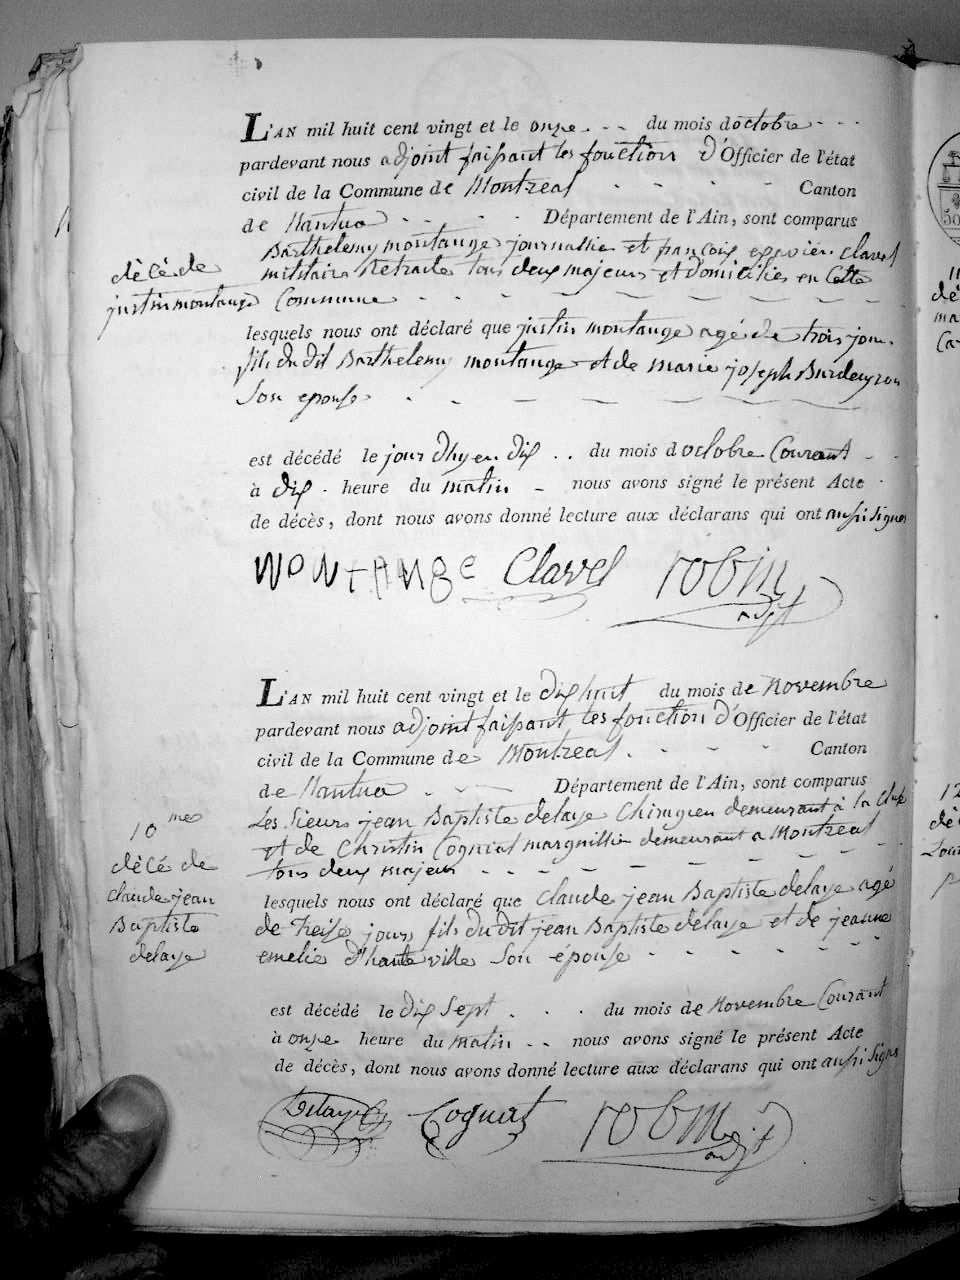 L'AN mil huit cent vingt et le onze du mois doctobre
pardevant nous adjoint faissant les fonction d'Officier de l'état
civil de la Commune de Montreal Canton
de Nantua Département de l'Ain, sont comparus
Barthelemy montange journallier et françois clavel
décé de
militaire Retraité tous deux majeurs et domiciliés en Cette
justin montange
Commune
lesquels nous ont déclaré que justin montange agé de trois jour
fils du dit Barthelemy montange et de marie joseph
Son epouse
est décédé le jour dhyer dix du mois doctobre Courant
à dix heure du matin nous avons signé le présent Acte
de décès, dont nous avons donné lecture aux déclarans qui ont aussi signes
MONTANGE Clavel robin
adjt
L'AN mil huit cent vingt et le dix huit du mois de Novembre
pardevant nous adjoint faissant les fonction d'Officier de l'état
civil de la Commune de Montreal Canton
de Nantua Département de l'Ain, sont comparus
Les Sieurs jean Baptiste delaye Chirugien demeurant à la
et de Christin Cognat marguillier demeurant a Montreal
tous deux majeur
10mes
décé de
claude jean
Baptiste
delaye
lesquels nous ont déclaré que Claude jean Baptiste delaye agé
de treise jours fils du dit jean Baptiste delaye et de jeanne
emelie d'hauteville Son épouse
est décédé le dix Sept du mois de Novembre Courant
à onze heure du matin nous avons signé le présent Acte
de décès, dont nous avons donné lecture aux déclarans qui ont aussi signes
Delaye Cognat robin
adjt
11
dé
ma
Ca
12
dé
Loui